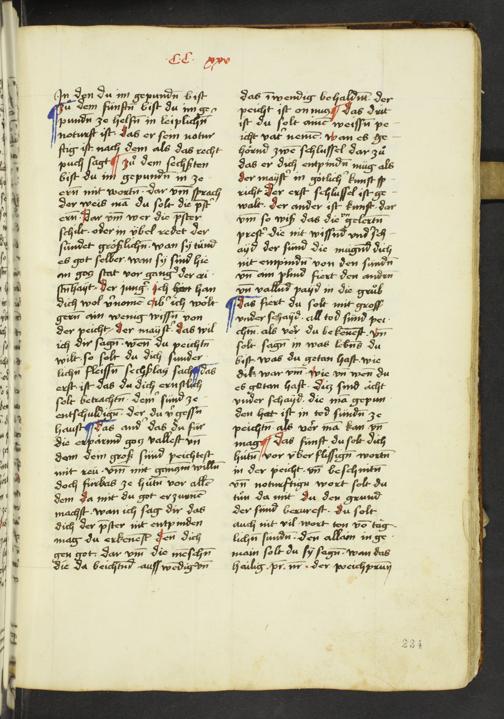 CC xxv
In den du im gepundn bist
zu dem funftn bist du im ge
pundn ze helfn in leiplichn
noturft ist. das er sein notur
ftig ist nach dem als das recht
puch sagt zu dem sechstn
bist du im gepundn in ze
ern mit wortn. dar um sprach
der weis ma du solt die pstr
ern. Dar um wer die pster
schilt. oder in ubel redet der
sundet groslichn. wan sy sind
es got selber wan sy sind hie
an gog stat vor gang der cri
stnhayt. der jung ich han
dich wol vnome ob ich wolt
gern ain wenig wissn von
der peicht. der mayst das wil
ich dir sagn. wen du peichtn
wilt. so solt du dich sunder
lichn fleissn sechslay sach das
erst ist das du dich ernstlich
solt betrachtn dem sund ze
entschuldign. der du vgessn
haust das and das du fur
die gog vallest vn
dem dem gros sund peichtest
mit reu. vm mit willn
doch furbas ze hutn vor alle
dem da mit du got erzurnt
machst. wan ich sag dir das
dich der pster nit entpinden
mag. du erkenest den dich
gen got. dar um die meschn
die da beichtnd auswedig vn
das inwendig behaldn. der
peicht ist onnucz das drit
ist du solt ainē weissn pe
icht vatr nemē. wan es ge
hornd zwē schlussel dar zu
das er dich entpindn mug als
der mayst in gotlich kunst s
richt der erst schlussel ist ge
walt. der ander ist kunst. dar
um so wis das die gelertn
prest die nit wissnd vnd sch
ayd der sund die mugnd dich
nit empindn von den sundn
vn ain plind fiert den andern
vn vallnd payd in die grub
das fiert du solt mit gross
vnder schayd. all tod sund pei
chtn. als ver du bekenest. vn
solt sagn in was lebns du
bist. was du getan hast. wie
dik. war um. wie vn wen du
es getan hast. dicz sind icht
vnder schayd. die ma gepun
den hat ist in tod sundn ze
peichtn als ver ma kan vn
mag das funft du solt dich
hutn vor vberflissign wortn
in der peicht. vn beschnitn
vn noturftign wort solt du
tun da mit du den grund
der sund berurest. du solt
auch nit vil wort von tag
lichn sundn. den allain in ge
main solt du sy sagn. wan das
hailig. pr. nr. der weichprun
234